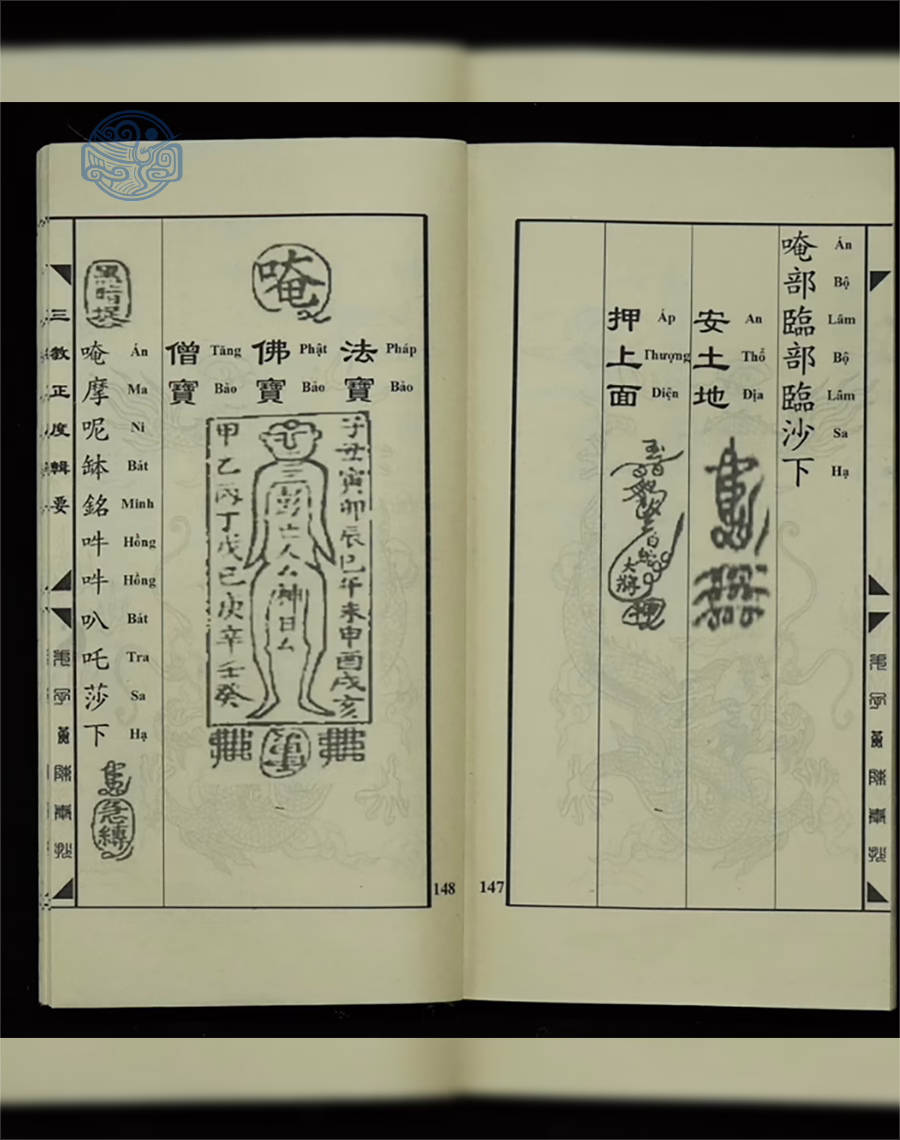 唵部臨部臨沙下
Án Bộ Lâm Bộ Lâm Sa Hạ
安土地
An Thổ Địa
押上面
Áp Thượng Diện
大將
147
唵
法寶
Pháp Bảo
佛寶
Phật Bảo
僧寶
Tăng Bảo
子丑寅卯辰巳午未申酉戌亥
三彭亡人厶神日厶
甲乙丙丁戊己庚辛壬癸
唵摩呢鉢銘吽吽叭吒莎下
Án Ma Ni Bát Minh Hồng Hồng Bát Tra Sa Hạ
急縛
三教正度輯要
148